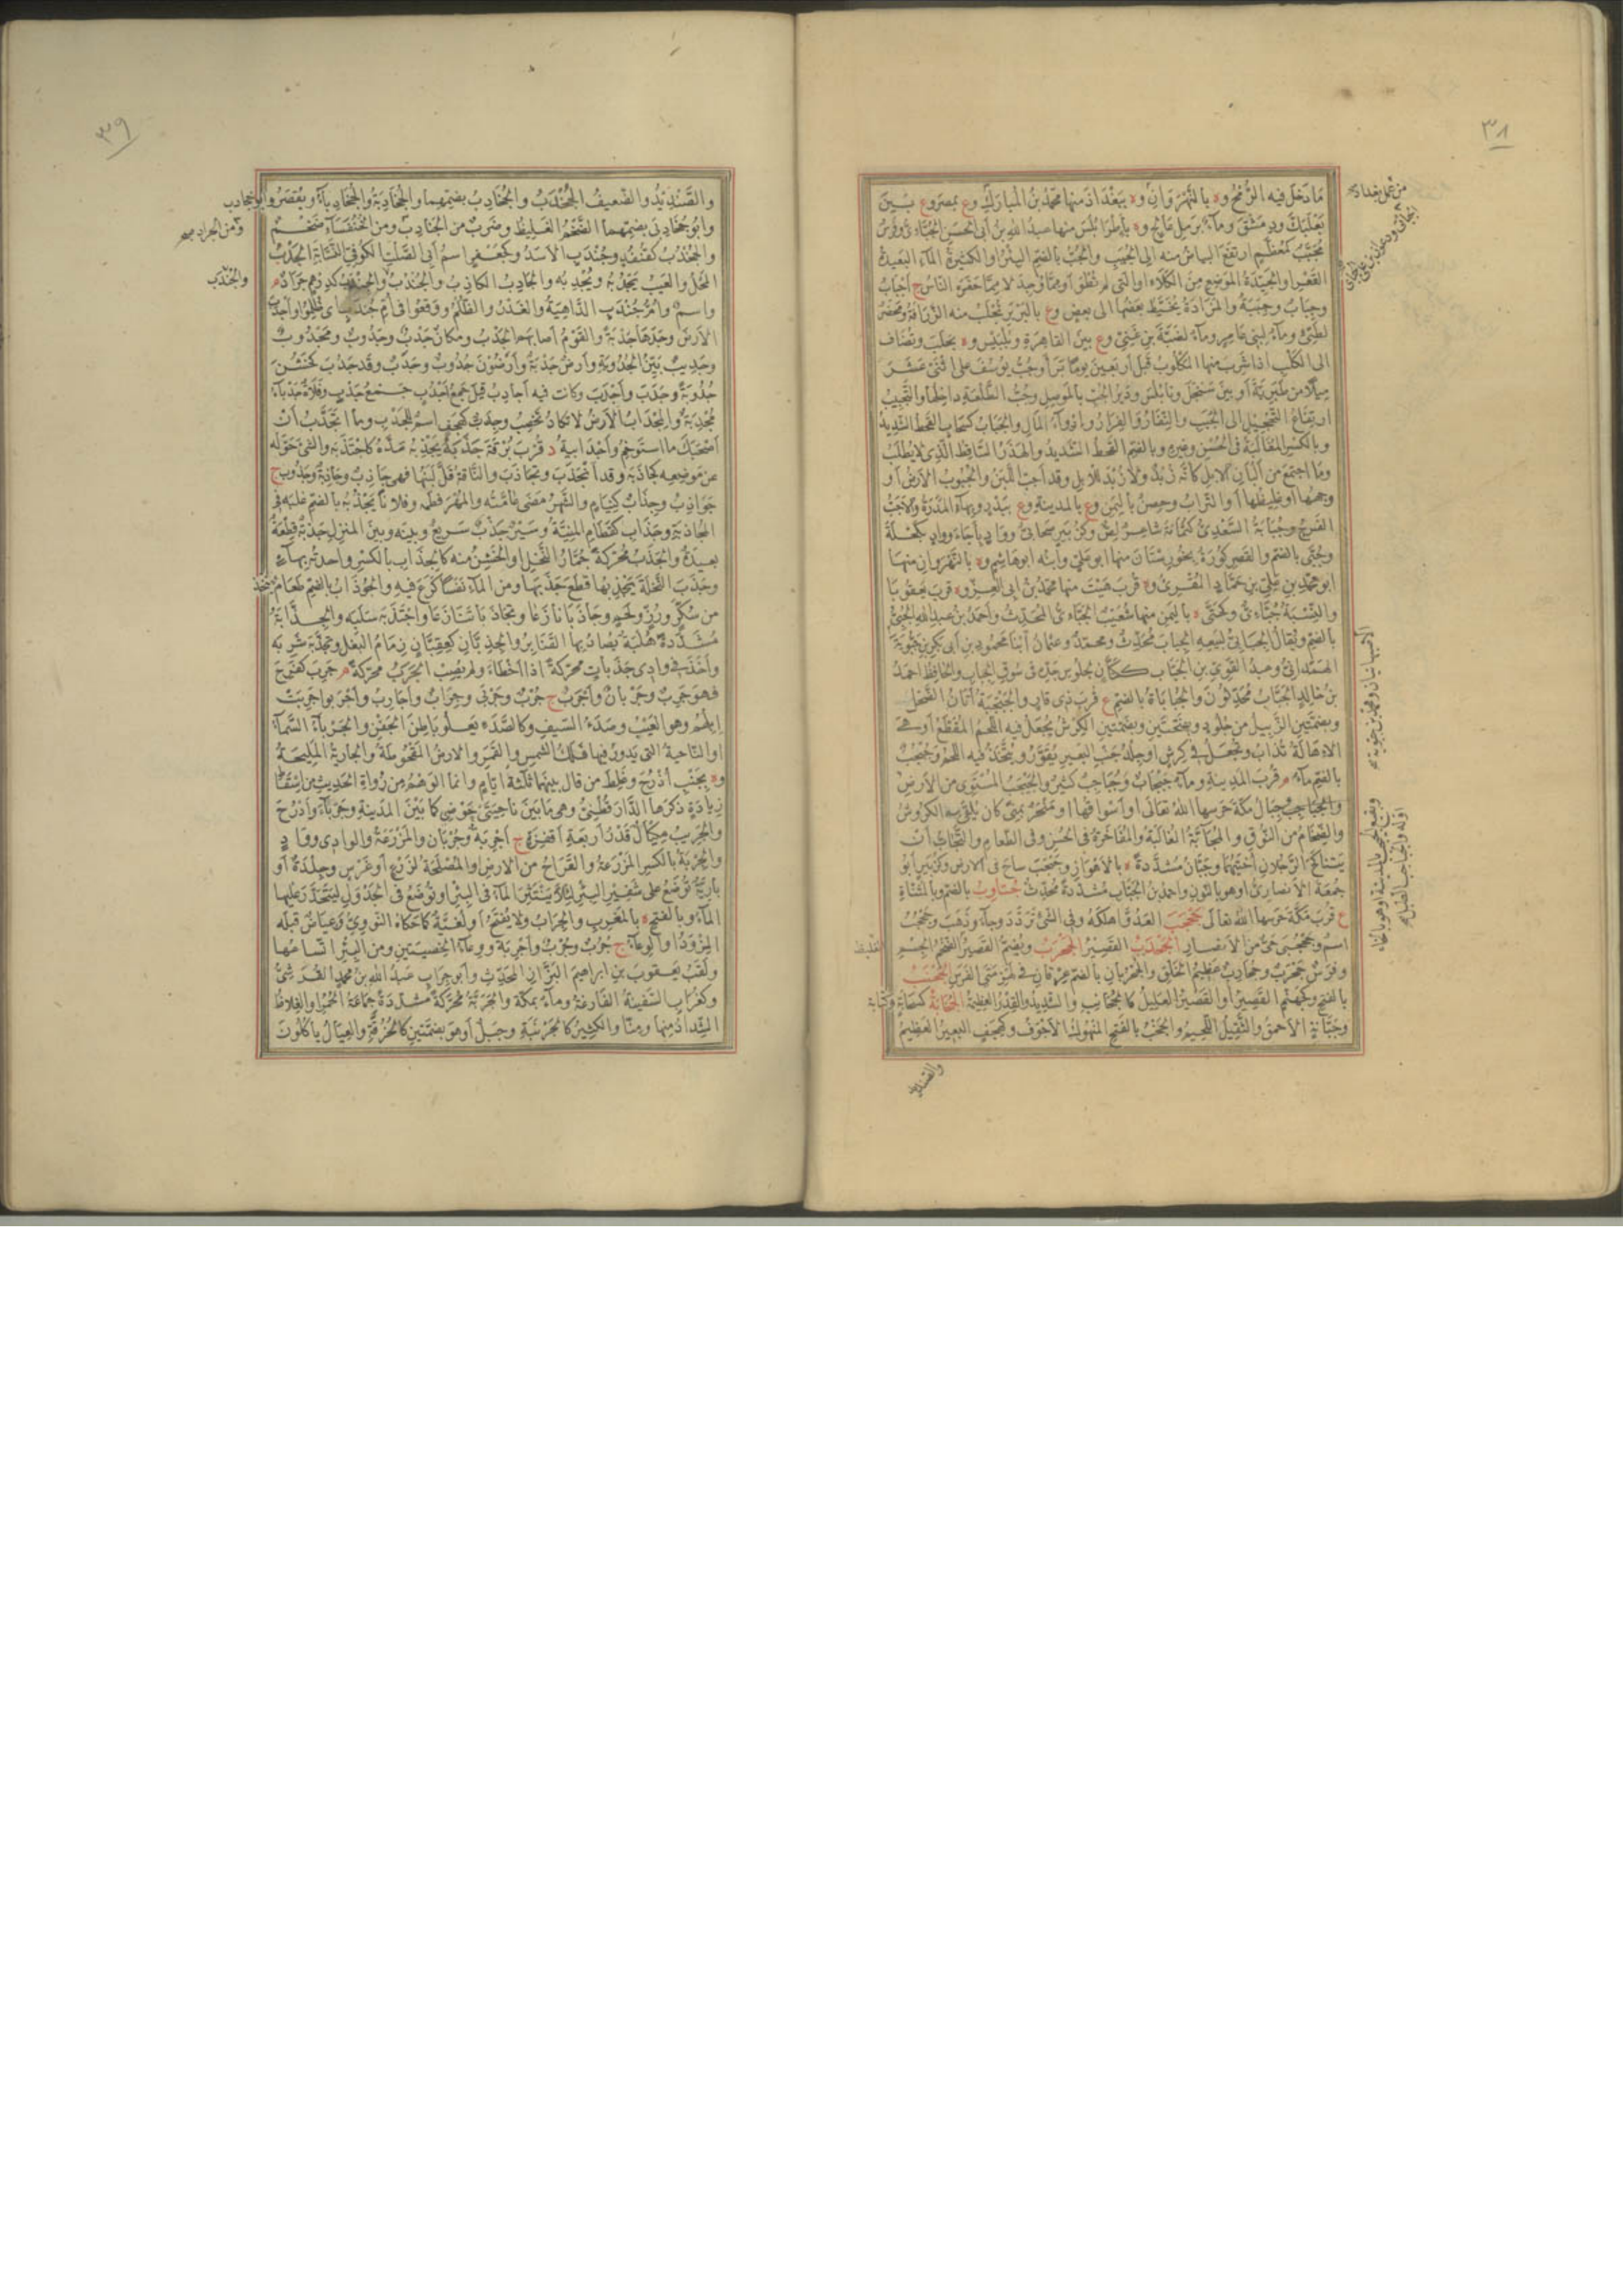 ٣٨
مَا دَخَلَ فيه الرُّمْحُ وة بالنَّهْرَوَانِ وة بِبَغْدَادَ منها محمّدُ بنُ المُبارَكِ وع بمصر وع بَيْنَ
بَعْلَبَكَّ ودِمَشْقَ وماءٌ برَمْلِ عَالِجٍ وة بأطرابُلُسَ منها عبدُ اللهِ بنُ أبى الحَسَنِ الجُبَّاءىُّ وفَرَسٌ
مُجَبَّبٌ كمُعَظَّمٍ ارتفع البياض منه إلى الجُبَبِ والجُبُّ بالضم البِئْرُ أو الكثيرةُ الماء البعيدةُ
القَعْرِ أو الجَيِّدَةُ المَوْضِعِ مِنَ الكَلَاءِ أو التى لم تُطْوَ أو ممّا وُجِدَ لا مِمَّا حَفَرَهُ النَّاسُ ج أجْبَابٌ
وجِبَابٌ وجِبَبَةٌ والمَزَادَةُ يُخَيَّطُ بعضُها إلى بعضٍ وع بالبَرْبَرِ تُجْلَبُ منه الزَّرَافَةُ ومَحْضَرٌ
لطيّئٍ وماءٌ لبنى عَامِرٍ وماءٌ لضَبَّةَ بنِ غَنِىٍّ وع بين القاهرةِ وبُلْبَيْسَ وة بحَلَبَ وتُضَافُ
إلى الكَلْبِ إذا شَرِبَ منها المَكْلُوبُ قبل أربعينَ يومًا بَرَأ وجُبُّ يُوسُفَ على اثْنَىْ عَشَرَ
مِيلًا من طَبَرِيَّةَ أو بين سَنْجَلَ ونابُلُسَ ودَيْرُ الجُبِّ بالموصِلِ وجُبُّ الطَّلْعَةِ داخِلُها والتَّجْبِيبُ
ارتفاعُ التَّحْجِيلِ إلى الجُبَبِ والنِّفَارُ والفِرَارُ وإرْوَاءُ المَالِ والجَبَابُ كسَحَابٍ القَحْطُ الشديدُ
وبالكسرِ المُغَالَبَةُ فى الحُسْنِ وغيرِهِ وبالضم القحط الشديدُ والهَدَرُ السَّاقِطُ الَّذِى لا يُطْلَبُ
وما اجتمع من ألبانِ الإبلِ كأنَّه زُبْدٌ ولا زُبْدَ للإبلِ وقد أجَبَّ اللَّبَنُ والجَبُوبُ الأرضُ أو
وجهُها أو غليظُها أو التراب وحِصْنٌ باليَمَنِ وع بالمدينةِ وع ببَدْرٍ وبهاءٍ المَدَرَةُ والأجَبُّ
الفرجُ وجُبَابَةُ السَّعْدِىُّ كثُمَامَةَ شاعرٌ لِصٌّ وكزُبَيْرٍ صَحَابىٌّ ووادٍ بأجَأ وواد بِكَحْلَةَ
وجُبَّى بالضم والقصرِ كُورَةٌ بخُوزِسْتَانَ منها أبو علىٍّ وابنُه أبو هاشمٍ وة بالنهروانِ منها
أبو محمّدِ بنِ عَلىِّ بنِ حَمَّادٍ المُقْرِئُ وة قُرْبَ هِيتَ منها محمّدُ بنُ أبى العِزِّ وة قُرْبَ بَعْقُوبَا
والنِّسْبَةُ جُبَّاءِىٌّ وكحَتَّى ة باليَمَنِ منها شُعَيْبٌ الجَبَّاءىُّ المُحَدِّثُ وأحمدُ بنُ عبدِ اللهِ الجُبِّىُّ
بالضم ويُقالُ الجِبَابِىُّ لبَيْعِهِ الجِبَابَ مُحَدِّثٌ ومحمدٌ وعثمانُ ابنا محمودِ بنِ أبى بكرِ بنِ جَبُّويَةَ
الهَمَذانيّ وعبدُ القَوِىِّ بنُ الجَبَّابِ ككَتَّانٍ لجُلُوسِ جَدِّهِ فى سُوقِ الجِبابِ والحافظُ أحمدُ
بنُ خالدٍ الجَبَّابُ مُحَدِّثُونَ والجُبَابَاةُ بالضم ع قُرْبَ ذِى قارٍ والجَبْجَبَةُ أتانُ الضَّحْلِ
وبضمتينِ الزَّبِيلُ من جُلُودٍ وبفتحتينِ وبضمتينِ الكَرِشُ يُجْعَلُ فيه اللَّحْمُ المُقَطَّعُ أو هى
الإهَالَةُ تُذَابُ وتُجْعَلُ فى كَرِشٍ أو جِلْدُ جَنْبِ البعيرِ يُقَوَّرُ ويُتَّخَذُ فيه اللحمُ وجُبْجُبٌ
بالضم ماءٌ قُرْبَ المدينةِ وماءٌ جَبْجَابٌ وجُبَاجِبٌ كثيرٌ والجَبْجَبُ المُسْتَوِى من الأرضِ
والجَبَاجِبُ جِبالُ مكّةَ حَرَسَها اللهُ تعالى أو أسواقُها أو مَنْحَرٌ بمِنًى كان يُلْقَى به الكُرُوشُ
والضِّخَامُ من النُّوقِ والمُجَابَّةُ المُغالَبَةُ والمُفاخَرَةُ فى الحُسْنِ وفى الطعامِ والتَّجَابُّ أنْ
يَتَنَاكَحَ الرَّجُلانِ أُخْتَيْهِما وجَبَّانُ مُشَدَّدَةً ة بالأهْوَازِ وجَبْجَبَ سَاحَ فى الأرضِ وكزُبَيْرٍ أبُو
جُمْعَةَ الأنصارىُّ أو هو بالنونِ وأحمدُ بنُ الجَبَّابِ مُشَدَّدَةً مُحَدِّثٌ جُتَاوِبُ بالضم وبالمُثَنَّاةِ
ع قُرْبَ مَكَّةَ حَرَسَها اللهُ تعالى جَحْجَبَ العَدُوَّ أهْلَكَهُ وفى الشىءِ تَرَدَّدَ وجاءَ وذَهَبَ وجَحْجَبٌ
اسمٌ وجَحْجَبَى حَىٌّ من الأنصارِ الجَحْدَبُ القَصِيرُ الجَحْرَبُ ويُضَمُّ القصيرُ الضَّخْمُ الجِسْمِ
وفرسٌ جَحْرَبٌ وجُحَارِبٌ عظيمُ الخَلْقِ والجُحْرُبانِ بالضم عِرْقانِ فى لِهْزِمَتَىِ الفَرَسِ الجَحْنَبُ
بالفتح وكجَهَنَّمٍ القصيرُ أو القصيرُ القليلُ كالجُحَانِبِ والشديدُ والقِدْرُ العظيمةُ الجَخَابَةُ كسَحَابَةٍ وكِتَابَةٍ
وجَبَّانَةٍ الأحمقُ والثَّقِيلُ اللَّحِيمُ والجَخْبُ بالفتح المَنْهُوكُ الأجْوَفُ وكهِجَفٍّ البعيرُ العظيمُ
والصنديد
من عمل بغداد
الغليظ
٣٩
والصِّنْدِيدُ والضَّعِيفُ الجُخْدُبُ والجُخَادِبُ بضمهما والجُخَادِبَةُ والجُخَادِبَاءُ ويُقْصَرُ وأبو جُخَادِبٍ
وأبو جُخَادِبَى بضمّهما الضَّخْمُ الغليظُ وضَرْبٌ من الجَنَادِبِ ومن الخُنْفَسَاءِ ضَخْمٌ
والجُخْدُبُ كقُنْفُذٍ وجُنْدَبٍ الأسَدُ وكجَعْفَرٍ اسمُ أبى الصَّلْتِ الكُوفِىِّ النَّسَّابَةِ الجَدْبُ
المَحْلُ والعَيْبُ يَجْدُبُهُ ويَجْدِبُهُ والجَادِبُ الكاذِبُ والجُنْدُبُ والجُنْدَبُ كدِرْهَمٍ جَرَادٌ م
واسمٌ وأُمُّ جُنْدَبٍ الدَّاهِيَةُ والغَدْرُ والظُّلْمُ ووقَعُوا فى أُمِّ جُنْدَبٍ أى ظُلِمُوا وأجْدَبَ
الأرضَ وجَدَها جَدْبَةً والقَوْمُ أصابَهُم الجَدْبُ ومكانٌ جَدْبٌ وجَدُوبٌ ومَجْدُوبٌ
وجَدِيبٌ بَيِّنُ الجُدُوبَةِ وأرضٌ جَدْبَةٌ وأرَضُونَ جُدُوبٌ وجَدْبٌ وقد جَدُبَ كخَشُنَ
جُدُوبَةً وجَدَبَ وأجْدَبَ وكانت فيه أجَادِبُ قيل جَمْعُ أجْدُبٍ جَمْعُ جَدْبٍ وفَلَاةٌ جَدْبَاءُ
مُجْدِبَةٌ والمِجْدَابُ الأرضُ لا تكادُ تُخْصِبُ وجِدَبٌّ كهِجَفٍّ اسمٌ للجَدْبِ وما أتَجَدَّبُ أنْ
أصْحَبَكَ ما أسْتَوْخِمُ وأجْدَابِيَةُ د قُرْبَ بَرْقَةَ جَذَبَهُ يَجْذِبُهُ مَدَّهُ كاجْتَذَبَهُ والشىءَ حَوَّلَه
عن موضعِه كجاذَبَهُ وقد انْجَذَبَ وتَجَاذَبَ والناقةُ قَلَّ لَبَنُها فهى جاذِبٌ وجاذِبَةٌ وجَذُوبٌ ج
جَوَاذِبُ وجِذَابٌ كنِيَامٍ والشهرُ مَضَى عامَّتُه والمُهْرَ فَطَمَه وفلانًا يَجْذُبُهُ بالضم غَلَبَهُ فى
المُجاذَبَةِ وجَذَابِ كقَطَامِ المَنِيَّةُ وسَيْرٌ جَذْبٌ سَرِيعٌ وبينَه وبينَ المنزِلِ جَذْبَةٌ قِطْعَةٌ
بعيدةٌ والجَذَبُ مُحَرَّكَةً جُمَّارُ النَّخْلِ أو الخَشِنُ منه كالجِذَابِ بالكسرِ واحدتُه بهاءٍ
وجَذَبَ النَّخْلَةَ يَجْذِبُها قَطَعَ جَذَبَها ومن الماءِ نَفَسًا كَرَعَ فيه والجُوذَابُ بالضم طعامٌ يُتَّخَذُ
من سُكَّرٍ ورُزٍّ ولَحْمٍ وجَاذَبَا نَازَعَا وتَجَاذَبَا تَنَازَعَا واجْتَذَبَهُ سَلَبَهُ والجَذَّابَةُ
مُشَدَّدَةً هُلْبَةٌ يُصادُ بها القَنَابِرُ والجِذِبَّانُ كعِفِتَّانٍ زِمَامُ النَّعْلِ وتَجَذَّبَهُ شَرِبَهُ
وأخَذَ فى وادِى جَذَبَاتٍ مُحَرَّكَةً إذا أخْطَأ ولم يُصِبْ الجَرَبُ مُحَرَّكَةً م جَرِبَ كفَرِحَ
فهو جَرِبٌ وجَرْبَانُ وأجْرَبُ ج جُرْبٌ وجَرْبَى وجِرَابٌ وأجَارِبُ وأجْرَبُوا جَرِبَتْ
إبلُهُم وهو العَيْبُ وصَدَأ السيفِ وكالصَّدَأ يَعْلُو باطِنَ الجَفْنِ والجَرْبَاءُ السماءُ
أو الناحيةُ التى يَدُورُ فيها فَلَكُ الشمسِ والقمرِ والأرضُ المَقْحُوطَةُ والجاريةُ المَلِيحَةُ
وة بجَنْبِ أذْرُحَ وغَلِطَ من قال بينَهما ثلاثةُ أيّامٍ وإنما الوَهْمُ من رُواةِ الحديثِ من إسْقاطِ
زيادةٍ ذكرها الدَّارَقُطْنِىُّ وهى ما بين ناحِيَتَىْ حَوْضِى كما بَيْنَ المدينةِ وجَرْبَاءَ وأذْرُحَ
والجَرِيبُ مِكْيَالٌ قَدْرُ أربعةِ أقْفِزَةٍ ج أجْرِبَةٌ وجُرْبَانٌ والمَزْرَعَةُ والوادِى ووادٍ
والجِرْبَةُ بالكسرِ المَزْرَعَةُ والقَرَاحُ من الأرضِ أو المُصْلَحَةُ لزَرْعٍ أو غَرْسٍ وجِلْدَةٌ أو
بارِيَّةٌ تُوضَعُ على شَفِيرِ البِئْرِ لئلّا يَنْتَثِرَ الماءُ فى البِئْرِ أو تُوضَعُ فى الجَدْوَلِ ليَتَحَدَّرَ عليها
الماءُ وبالفتح ة بالمَغْرِبِ والجِرَابُ ولا يُفْتَحُ أو لُغَيَّةٌ كما حكاهُ النَّوَوِىُّ وعِيَاضٌ قَبْلَه
المِزْوَدُ أو الوِعَاءُ ج جُرُبٌ وجُرْبٌ وأجْرِبَةٌ ووِعاءُ الخُصْيَتَيْنِ ومن البِئْرِ اتِّسَاعُها
ولَقَبُ يعقوبَ بنِ إبراهيمَ البَزَّازِ المُحَدِّثِ وأبو جِرَابٍ عبدُ اللهِ بنُ محمدٍ القُرَشِىُّ
وكغُرَابٍ السفينةُ الفارغةُ وماءٌ بمكّةَ والجَرَبَّةُ مُحَرَّكَةً مُشَدَّدَةً جماعةُ الحُمُرِ أو الغِلَاظُ
الشِّدَادُ منها ومنّا والكثيرُ كالجَرَنْبَةِ وجبلٌ أو هو بضمتينِ كالحُزُقَّةِ والعِيَالُ يأكلونَ
ومن الجراد
والجُنْدَب